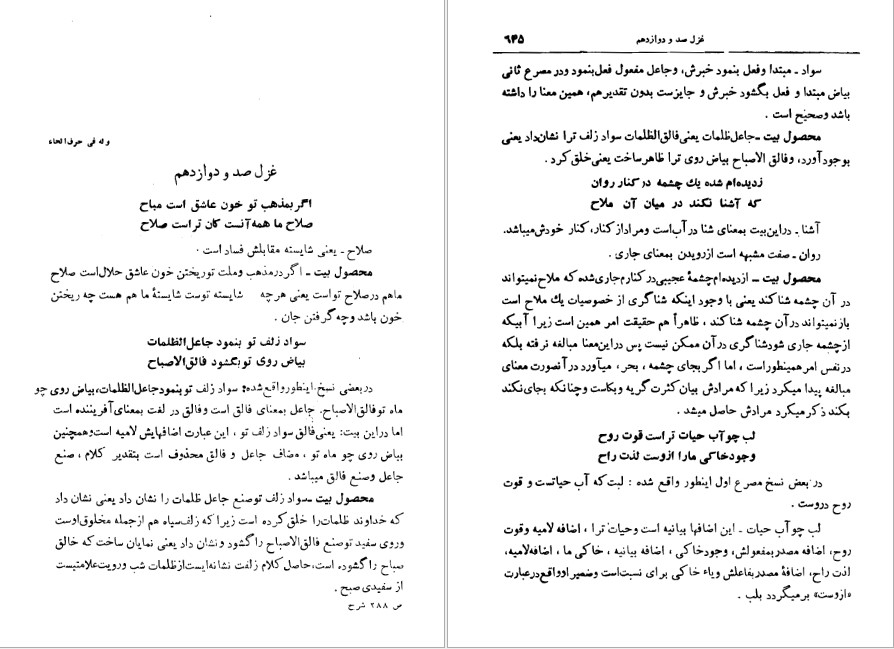 وله فی حرف الحاء
غزل صد و دوازدهم
اگر بمذهب تو خون عاشق است مباح
صلاح ما همه آنست کان تراست صلاح
صلاح ـ یعنی شایسته مقابلش فساد است .
محصول بیت ـ اگر درمذهب وملت توریختن خون عاشق حلال‌است صلاح
ماهم درصلاح تواست یعنی هرچه شایسته توست شایستهٔ ما هم هست چه ریختن
خون باشد وچه گرفتن جان .
سواد زلف تو بنمود جاعل‌الظلمات
بیاض روی تو بگشود فالق‌الاصباح
دربعضی نسخ اینطور واقع شده: سواد زلف تو بنمود جاعل‌الظلمات، بیاض روی چو
ماه تو فالق‌الاصباح. جاعل بمعنای فالق است وفالق در لغت بمعنای آفریننده است
اما دراین بیت: یعنی فالق سواد زلف تو ، این عبارت اضافهایش لامیه است وهمچنین
بیاض روی چو ماه تو ، مضاف جاعل و فالق محذوف است بتقدیر کلام ، صنع
جاعل وصنع فالق میباشد .
محصول بیت ـ سواد زلف توصنع جاعل ظلمات را نشان داد یعنی نشان داد
که خداوند ظلمات را خلق کرده است زیرا که زلف سیاه هم ازجمله مخلوق اوست
وروی سفید توصنع فالق‌الاصباح را گشود و نشان داد یعنی نمایان ساخت که خالق
صباح را گشوده است، حاصل کلام زلفت نشانه‌ایست ازظلمات شب ورویت علامتیست
از سفیدی صبح .
ص ۲۸۸ شرح
غزل صد و دوازدهم
۶۴۵
سواد ـ مبتدا وفعل بنمود خبرش، وجاعل مفعول فعل بنمود ودر مصرع ثانی
بیاض مبتدا و فعل بگشود خبرش و جایزست بدون تقدیرهم، همین معنا را داشته
باشد وصحیح است .
محصول بیت ـ جاعل ظلمات یعنی فالق‌الظلمات سواد زلف ترا نشان داد یعنی
بوجود آورد، وفالق الاصباح بیاض روی ترا ظاهر ساخت یعنی خلق کرد .
زدیده‌ام شده یك چشمه در کنار روان
که آشنا نکند در میان آن ملاح
آشنا ـ دراین بیت بمعنای شنا درآب است ومراد از کنار، کنار خودش میباشد.
روان ـ صفت مشبهه است ازرویدن بمعنای جاری .
محصول بیت ـ ازدیده‌ام چشمهٔ عجیبی در کنارم جاری شده که ملاح نمیتواند
در آن چشمه شنا کند یعنی با وجود اینکه شناگری از خصوصیات یك ملاح است
باز نمیتواند در آن چشمه شنا کند ، ظاهراً هم حقیقت امر همین است زیرا آبیکه
از چشمه جاری شود شناگری در آن ممکن نیست پس دراین معنا مبالغه نرفته بلکه
در نفس امر همینطور است ، اما اگر بجای چشمه ، بحر ، میآورد در آنصورت معنای
مبالغه پیدا میکرد زیرا که مرادش بیان کثرت گریه و بکاست وچنانکه بجای نکند
بکند ذکر میکرد مرادش حاصل میشد .
لب چو آب حیات تراست قوت روح
وجود خاکی مارا ازوست لذت راح
در بعض نسخ مصرع اول اینطور واقع شده : لبت که آب حیاتست و قوت
روح دروست .
لب چو آب حیات ـ این اضافها بیانیه است وحیات ترا ، اضافه لامیه وقوت
روح، اضافه مصدر بمفعولش، وجود خاکی ، اضافه بیانیه ، خاکی ما ، اضافه لامیه،
لذت راح، اضافهٔ مصدر بفاعلش ویاء خاکی برای نسبت است وضمیر او واقع در عبارت
«ازوست» برمیگردد بلب .